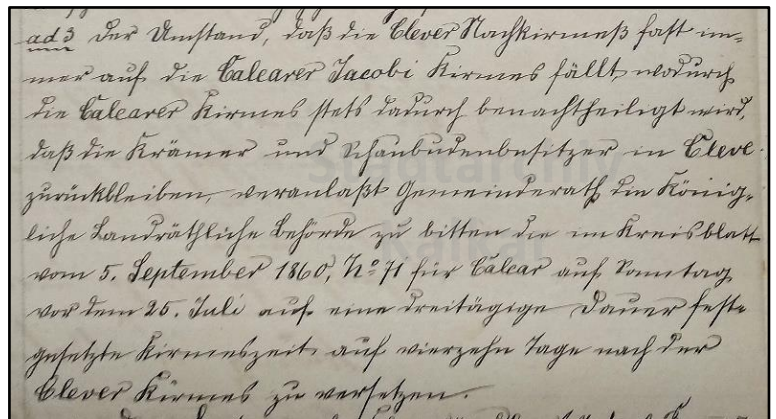 ad 3 Der Umstand, daß die Clever Nachkirmeß fast im-
mer auf die Calcarer Jacobi Kirmes fällt, wodurch
die Calcarer Kirmes stets dadurch benachtheiligt wird,
daß die Krämer und Schaubudenbesitzer in Cleve
zurückbleiben, veranlaßt Gemeinderath die König-
liche Landräthliche Behörde zu bitten die im Kreisblatt
vom 5. September 1860, No 71 für Calcar auf Sonntag
vor dem 25. Juli auf eine dreitägige Dauer fest-
gesetzte Kirmeszeit auf vierzehn Tage nach der
Clever Kirmes zu versetzen.